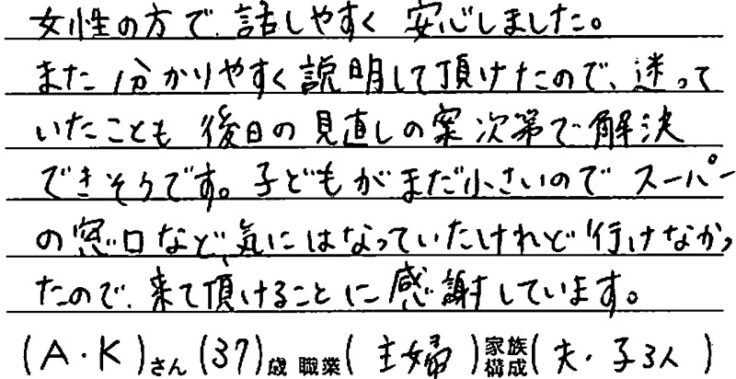 女性の方で、話しやすく 安心しました。
また 分かりやすく説明して頂けたので、迷って
いたことも 後日の見直しの案次第で解決
できそうです。子どもがまだ小さいので スーパー
の窓口など、気にはなっていたけれど 行けなかっ
たので、来て頂けることに感謝しています。
(A・K)さん (37)歳 職業(主婦)家族構成(夫・子3人)